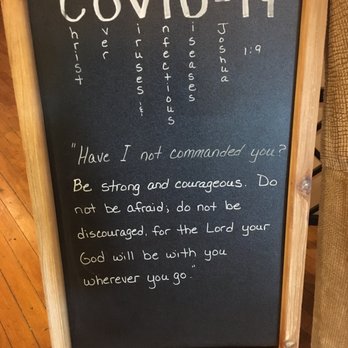 COVID-19
hrist
ver
iruses &
nfectious
iseases
Joshua
1:9
"Have I not commanded you?
Be strong and courageous. Do
not be afraid; do not be
discouraged, for the Lord your
God will be with you
wherever you go."